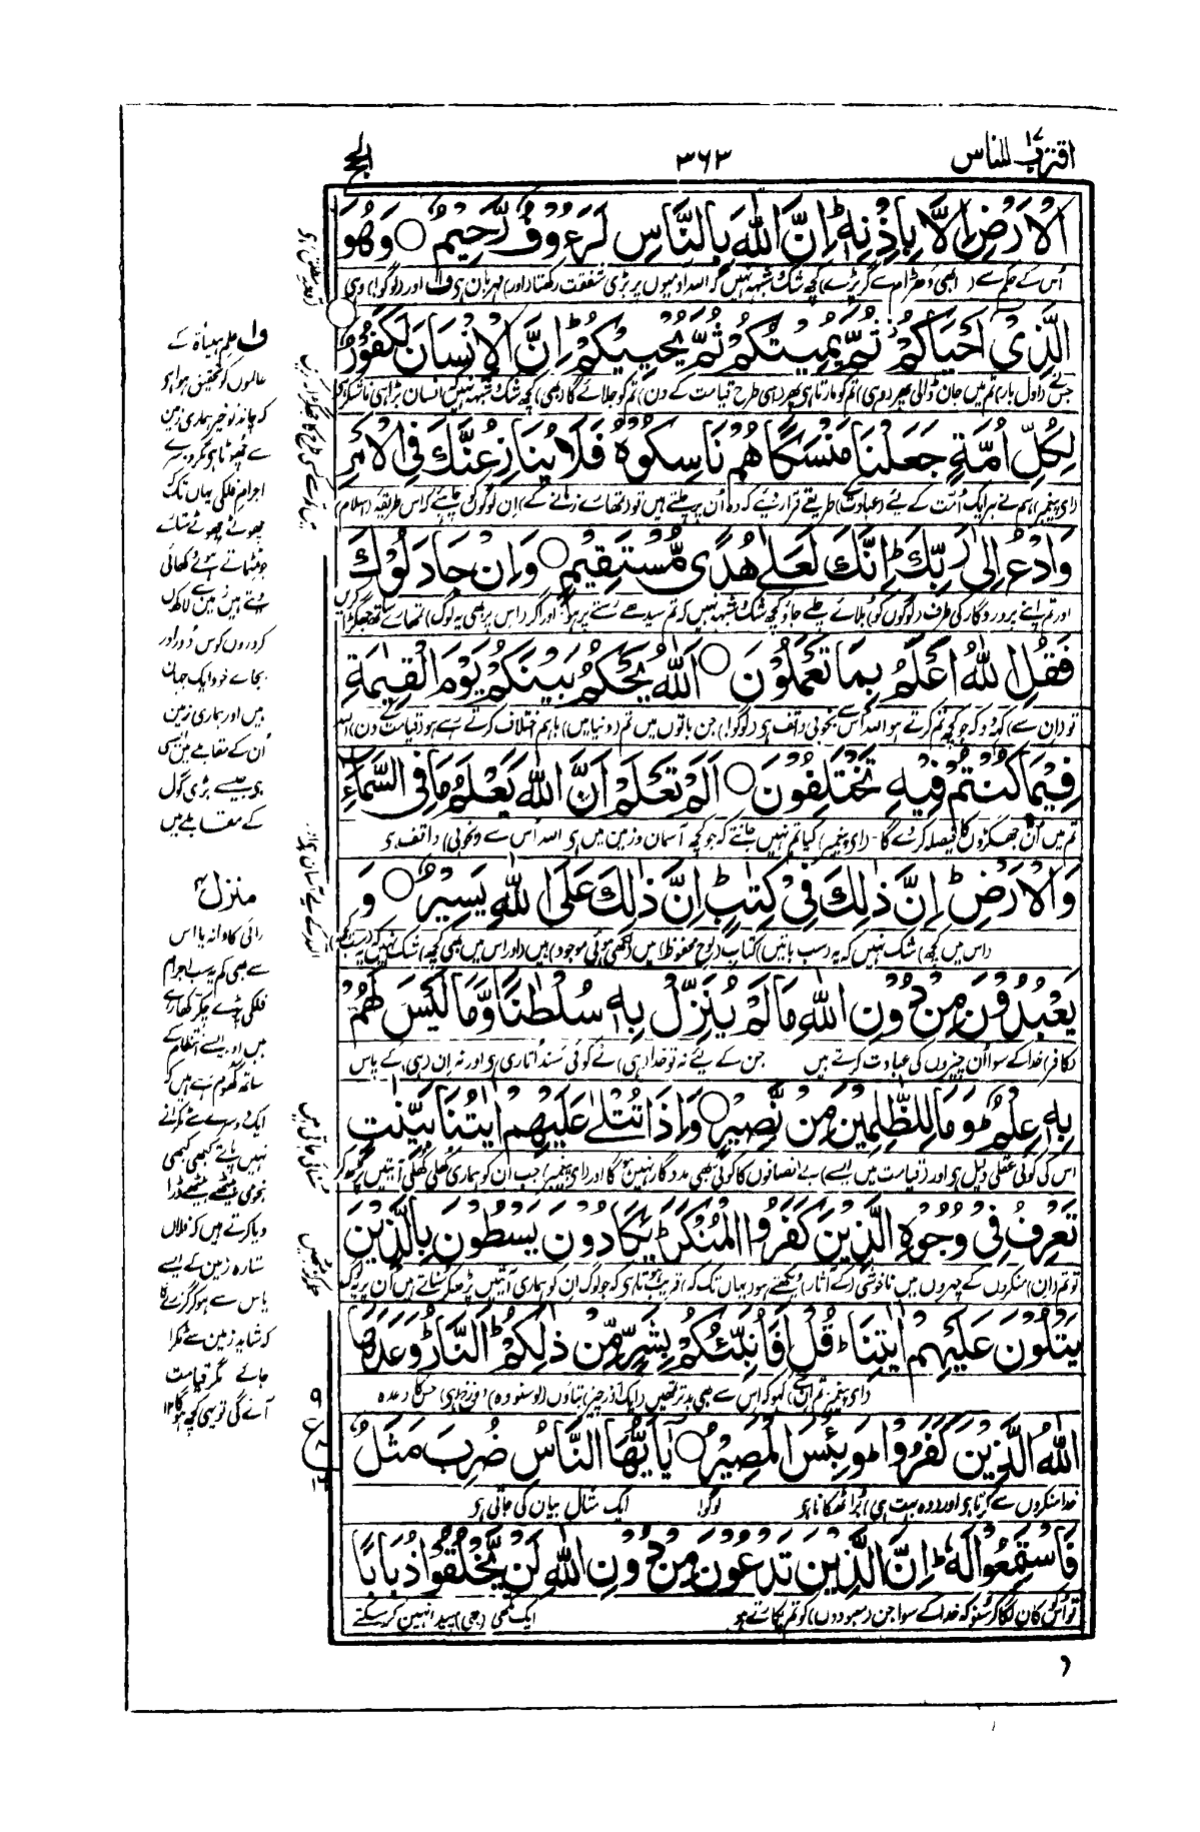 اقترب للناس ١٧
٣٦٣
الحج
الْاَرْضِ اِلَّا بِاِذْنِهٖ ؕ اِنَّ اللّٰهَ بِالنَّاسِ لَرَءُوْفٌ رَّحِيْمٌ ○ وَهُوَ
اُس کے حکم سے ( ابھی دھڑام سے گر پڑے) کچھ شک شبہ نہیں کہ اللہ آدمیوں پر بڑی شفقت رکھتا (اور) مہربان ہی ف اور (لوگو!) وہی
الَّذِيْٓ اَحْيَاكُمْ ؗ ثُمَّ يُمِيْتُكُمْ ثُمَّ يُحْيِيْكُمْ ؕ اِنَّ الْاِنْسَانَ لَكَفُوْرٌ
جسنے (اول بار) تم میں جان ڈالی پھر (وہی) تم کو مارتا ہی پھر (اسی طرح قیامت کے دن) تم کو جلائے گا (بھی) کچھ شک شبہ نہیں انسان بڑا ہی ناشکرا
لِكُلِّ اُمَّةٍ جَعَلْنَا مَنْسَكًا هُمْ نَاسِكُوْهُ فَلَا يُنَازِعُنَّكَ فِي الْاَمْرِ
(اے پیغمبر) ہم نے ہر ایک اُمت کے لیے (عبادت کے) طریقے قرار دیے کہ وہ اُن پر چلتے ہیں تو (تمھارے زمانے کے) ان لوگوں کو چاہیے کہ اس طریقۂ (اسلام)
وَادْعُ اِلٰى رَبِّكَ ؕ اِنَّكَ لَعَلٰى هُدًى مُّسْتَقِيْمٍ ○ وَاِنْ جَادَلُوْكَ
اور تم اپنے پروردگار کی طرف (لوگوں کو) بلائے چلے جاؤ کچھ شک و شبہ نہیں کہ تم سیدھے رستے پر ہو۔ اور اگر (اس پر بھی یہ لوگ) تمھارے ساتھ جھگڑا کریں
فَقُلِ اللّٰهُ اَعْلَمُ بِمَا تَعْمَلُوْنَ ○ اَللّٰهُ يَحْكُمُ بَيْنَكُمْ يَوْمَ الْقِيٰمَةِ
تو (ان سے) کہہ دو کہ جو کچھ تم کرتے ہو اللہ اُس سے بخوبی واقف ہی (لوگو!) جن باتوں میں تم (دنیا میں) باہم اختلاف کرتے رہے ہو قیامت کے دن اللہ
فِيْمَا كُنْتُمْ فِيْهِ تَخْتَلِفُوْنَ ○ اَلَمْ تَعْلَمْ اَنَّ اللّٰهَ يَعْلَمُ مَا فِي السَّمَآءِ
تم میں اُن جھگڑوں کا فیصلہ کردے گا۔ (اے پیغمبر) کیا تم نہیں جانتے کہ جو کچھ آسمان و زمین میں ہی اللہ اُس سے (بخوبی) واقف ہی
وَالْاَرْضِ ؕ اِنَّ ذٰلِكَ فِيْ كِتٰبٍ ؕ اِنَّ ذٰلِكَ عَلَى اللّٰهِ يَسِيْرٌ ○ وَ
(اس میں کچھ) شک نہیں کہ یہ (سب باتیں) کتاب (لوح محفوظ) میں (لکھی ہوئی موجود) ہیں (اور اس میں بھی کچھ) شک نہیں کہ یہ
يَعْبُدُوْنَ مِنْ دُوْنِ اللّٰهِ مَا لَمْ يُنَزِّلْ بِهٖ سُلْطٰنًا وَّمَا لَيْسَ لَهُمْ
(کافر) خدا کے سوا اُن چیزوں کی عبادت کرتے ہیں جن کے لیے نہ تو خدا (ہی) نے کوئی سند اُتاری ہی اور نہ ان (ہی) کے پاس
بِهٖ عِلْمٌ ؕ وَمَا لِلظّٰلِمِيْنَ مِنْ نَّصِيْرٍ ○ وَاِذَا تُتْلٰى عَلَيْهِمْ اٰيٰتُنَا بَيِّنٰتٍ
اس کی کوئی عقلی دلیل ہی اور (قیامت میں ایسے) بے انصافوں کا کوئی بھی مددگار نہیں ہوگا اور (اے پیغمبر) جب ان کو ہماری کھلی کھلی آیتیں پڑھ کر
تَعْرِفُ فِيْ وُجُوْهِ الَّذِيْنَ كَفَرُوا الْمُنْكَرَ ؕ يَكَادُوْنَ يَسْطُوْنَ بِالَّذِيْنَ
تو تم (ان) منکروں کے چہروں میں ناخوشی (کے آثار) دیکھتے ہو (یہاں تک کہ) قریب ہوتا ہی کہ جو لوگ ان کو ہماری آیتیں پڑھ کر سناتے ہیں اُن پر
يَتْلُوْنَ عَلَيْهِمْ اٰيٰتِنَا ؕ قُلْ اَفَاُنَبِّئُكُمْ بِشَرٍّ مِّنْ ذٰلِكُمْ ؕ اَلنَّارُ ؕ وَعَدَهَا
(اے پیغمبر تم ان سے) کہو کہ اس سے بھی بدتر تمھیں (ایک اور چیز) بتاؤں (لو سنو وہ) دوزخ (ہی) جس کا وعدہ
اللّٰهُ الَّذِيْنَ كَفَرُوْا ؕ وَبِئْسَ الْمَصِيْرُ ○ يٰٓاَيُّهَا النَّاسُ ضُرِبَ مَثَلٌ
خدا منکروں سے کرتا ہی اور (وہ بہت ہی) بُرا ٹھکانا ہی لوگو! ایک مثال بیان کی جاتی ہی
فَاسْتَمِعُوْا لَهٗ ؕ اِنَّ الَّذِيْنَ تَدْعُوْنَ مِنْ دُوْنِ اللّٰهِ لَنْ يَّخْلُقُوْا ذُبَابًا
تو اُس کو کان لگا کر سنو کہ خدا کے سوا جن (معبودوں) کو تم پکارتے ہو ایک مکھی (بھی) پیدا نہیں کر سکتے
ف علم ہیئاۃ کے
عالموں کو تحقیق ہوا ہی
کہ چاند تو خیر ہماری زمین
سے چھوٹا ہی مگر دوسرے
اجرام فلکی یہاں تک
چھوٹے چھوٹے ستارے
ٹمٹماتے ہوئے دکھائی
دیتے ہیں زمین سے لاکھوں
کروروں کوس دور اور
بجائے خود ایک جہان
ہیں اور ہماری زمین
اُن کے مقابلے میں ایسی
ہی جیسے بڑی گول
کے مقابلے میں
منزل ٤
رائی کا دانہ یا اس
سے بھی کم یہ سب اجرام
فلکی پڑے چکر کھا رہے
ہیں اور ایسے انتظام کے
ساتھ گھوم رہے ہیں کہ
ایک دوسرے سے ٹکرانے
نہیں پاتے کبھی کبھی
نجومی بیٹھے بیٹھے ڈرا
دیا کرتے ہیں کہ فلاں
ستارہ زمین کے ایسے
پاس سے ہو کر گزرے گا
کہ شاید زمین سے ٹکرا
جائے مگر قیامت
آئے گی تو یہی کچھ ہوگا ١٢